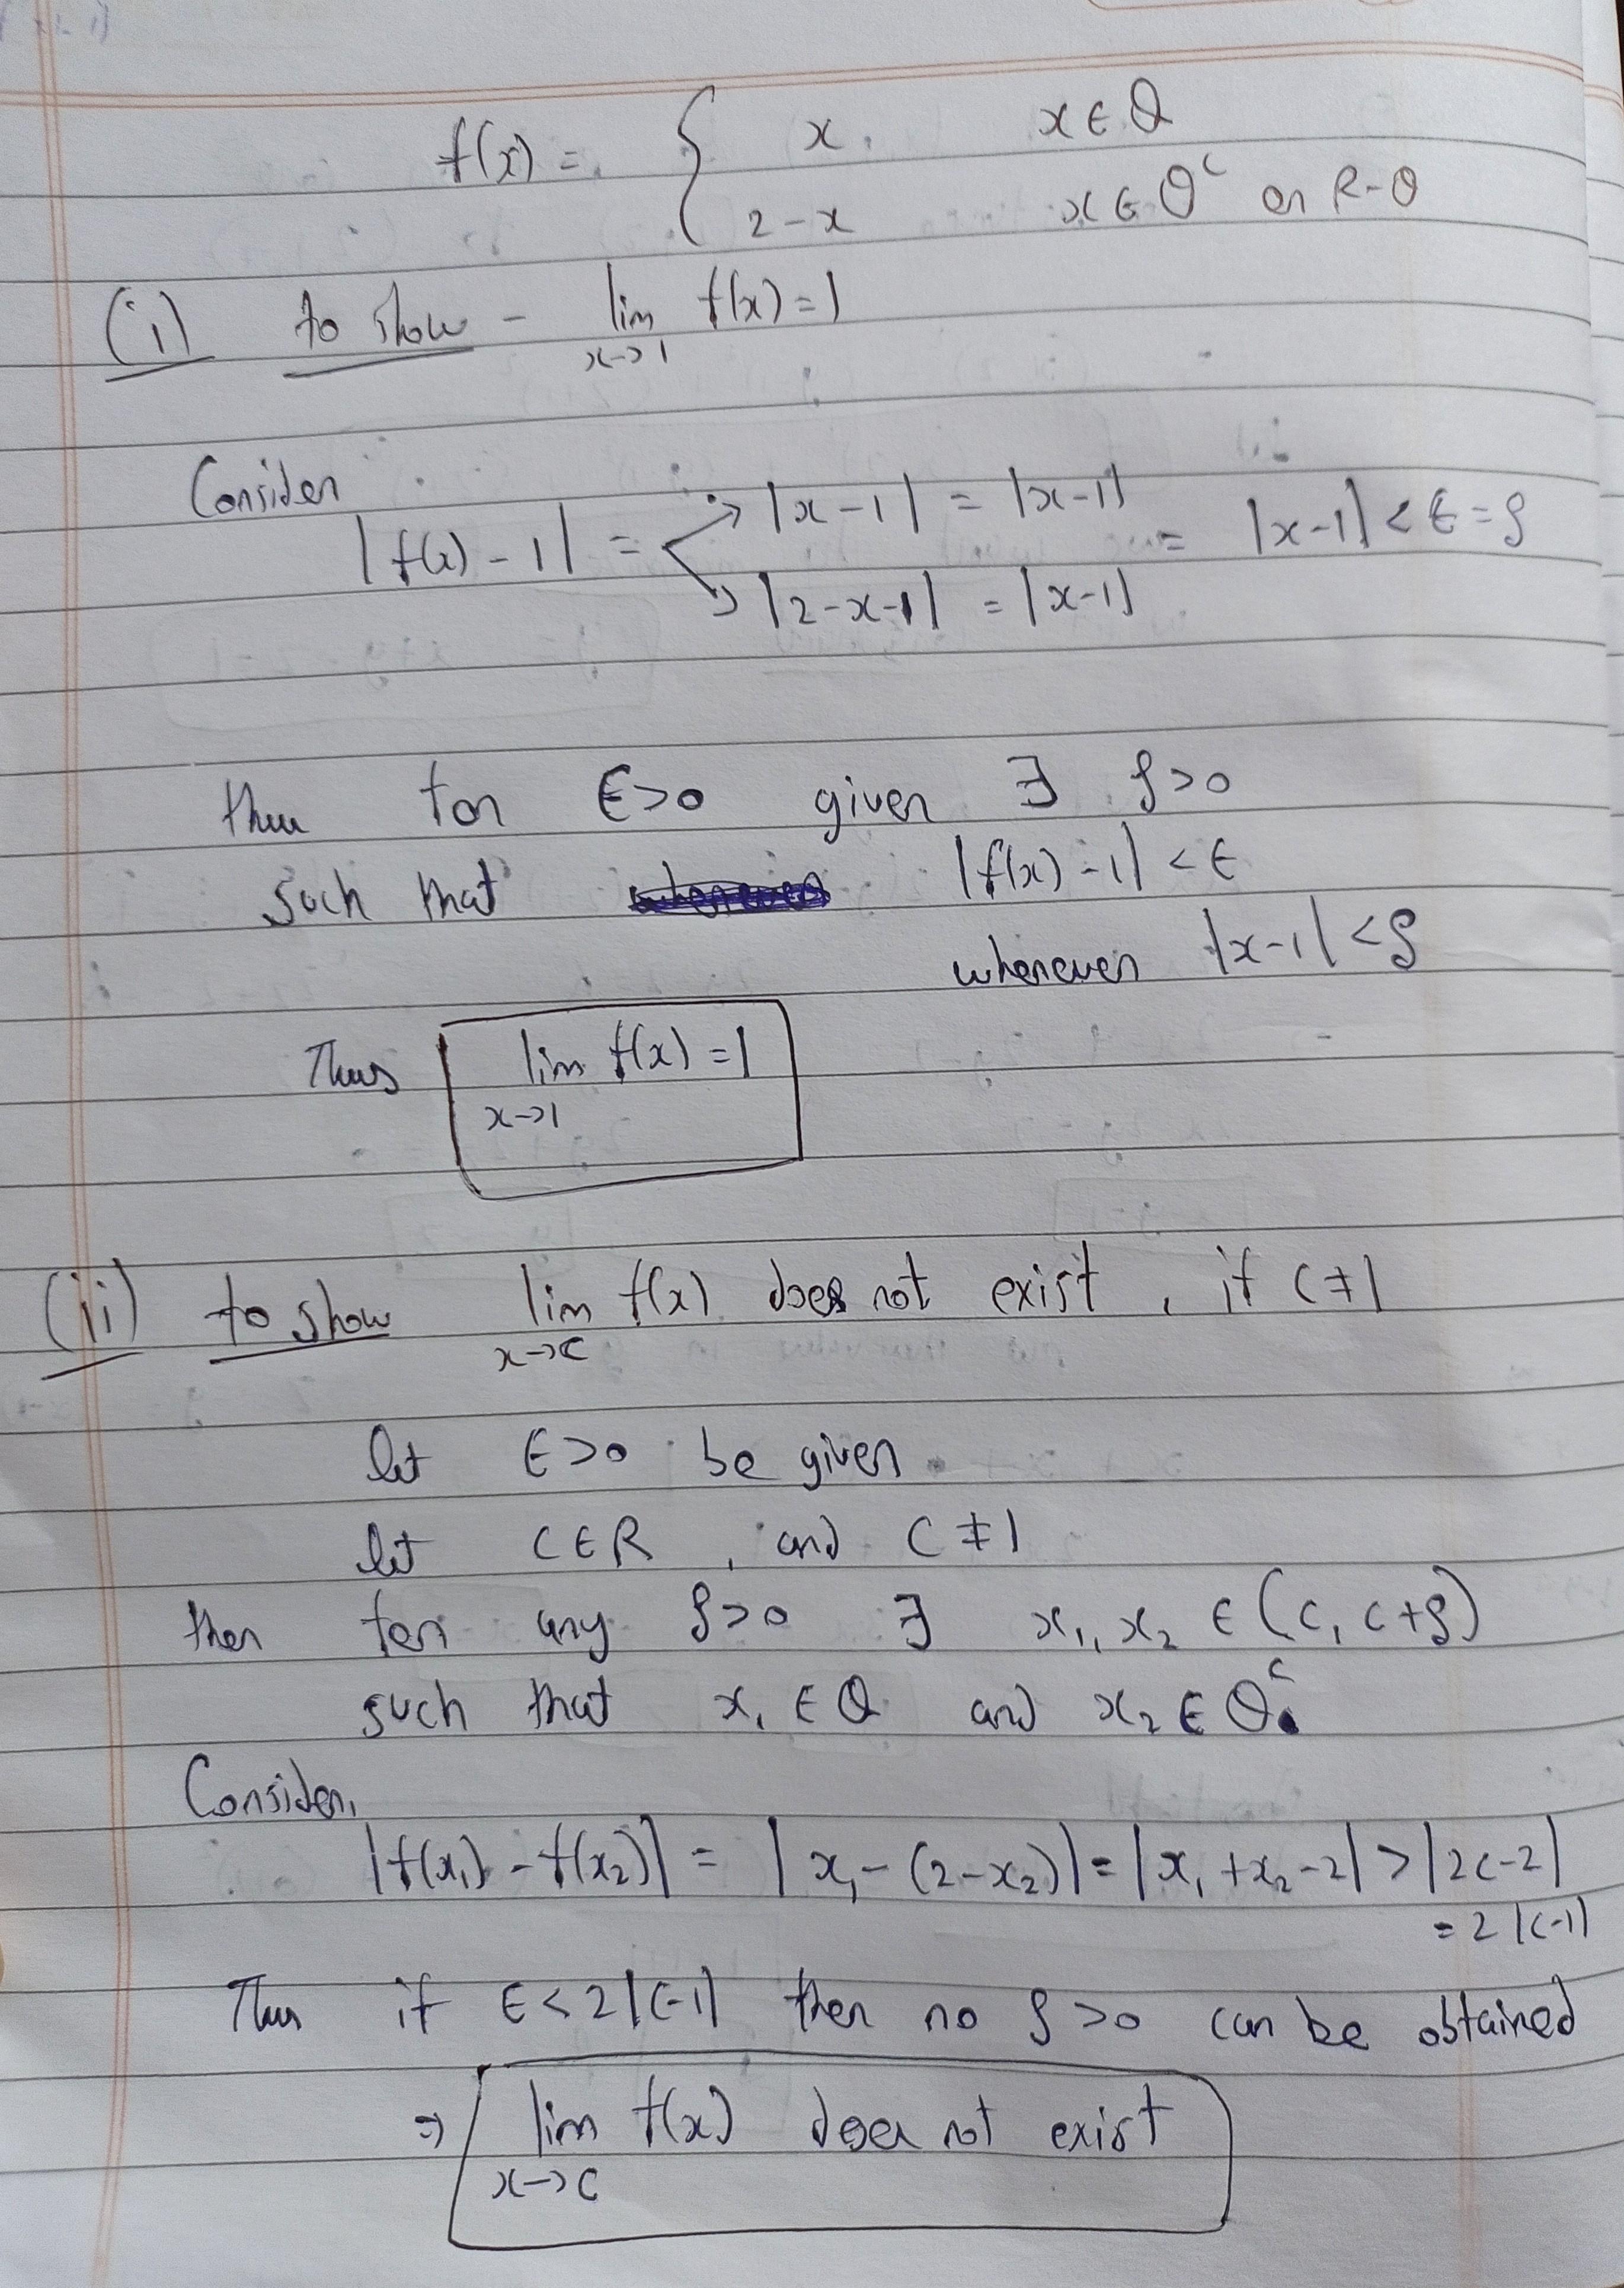 f(x) = { x, x ∈ Q
2-x x ∈ Q^c or R-Q
(i) to show - lim f(x) = 1
x→1
Consider
|f(x) - 1| = → |x-1| = |x-1| = |x-1| < ε = δ
→ |2-x-1| = |x-1|
then for ε>0 given ∃ δ>0
such that |f(x) - 1| < ε
whenever |x-1| < δ
Thus lim f(x) = 1
x→1
(ii) to show lim f(x) does not exist, if c ≠ 1
x→c
let ε>0 be given
let c ∈ R, and c ≠ 1
then for any δ>0 ∃ x₁, x₂ ∈ (c, c+δ)
such that x₁ ∈ Q and x₂ ∈ Q^c
Consider,
|f(x₁) - f(x₂)| = |x₁ - (2-x₂)| = |x₁ + x₂ - 2| > |2c-2|
= 2|c-1|
Thus if ε < 2|c-1| then no δ>0 can be obtained
⇒ lim f(x) does not exist
x→c